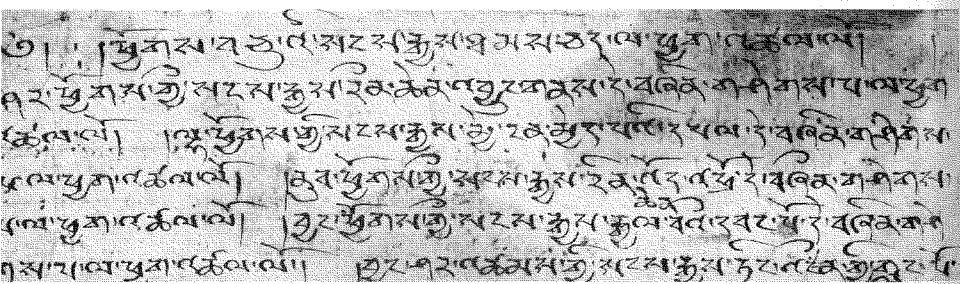 ༄། : །ཕྱོགས་བཅུའི་སངས་རྒྱས་ཐམས་ཅད་ལ་ཕྱག་འཚལ་ལོ།
ཤར་ཕྱོགས་ཀྱི་སངས་རྒྱས་རིན་ཆེན་འབྱུང་གནས་དེ་བཞིན་གཤེགས་པ་ལ་ཕྱག
འཚལ་ལོ། །ལྷོ་ཕྱོགས་ཀྱི་སངས་རྒྱས་མྱ་ངན་མྱེད་པའི་དཔལ་དེ་བཞིན་གཤེགས་
པ་ལ་ཕྱག་འཚལ་ལོ། །ནུབ་ཕྱོགས་ཀྱི་སངས་རྒྱས་རིན་ཆེན་འོད་འཕྲོ་དེ་བཞིན་གཤེགས་
པ་ལ་ཕྱག་འཚལ་ལོ། །བྱང་ཕྱོགས་ཀྱི་སངས་རྒྱས་རྒྱལ་བའི་དབང་པོ་དེ་བཞིན་གཤེ
གས་པ་ལ་ཕྱག་འཚལ་ལོ། །བྱང་ཤར་འཚམས་ཀྱི་སངས་རྒྱས་ཏིང་འཛིན་གྱི་གླང་པོ